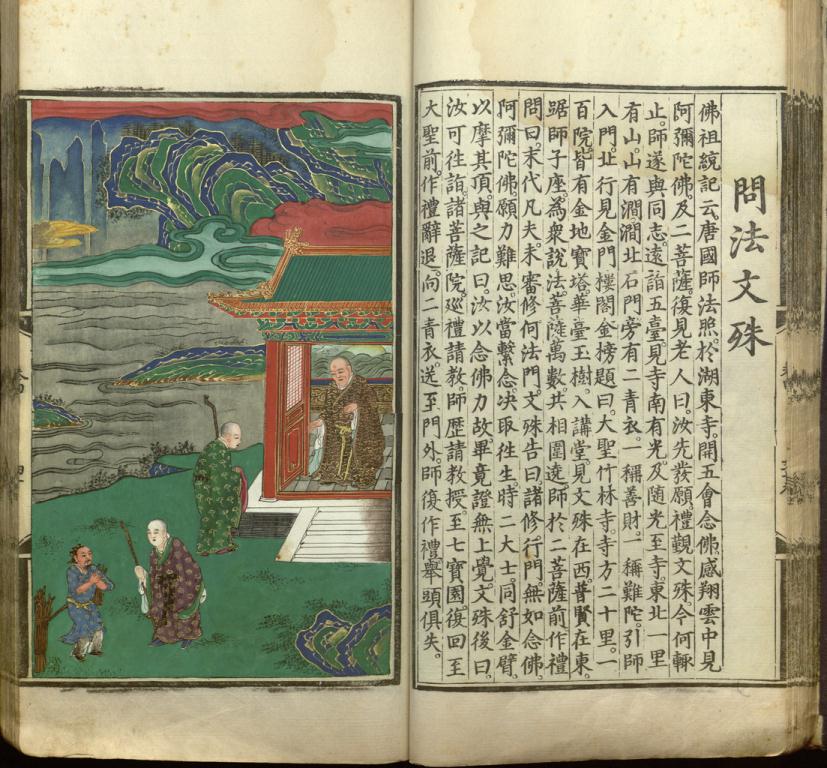 問法文殊
佛祖統記云。唐國師法照。於湖東寺。開五會念佛。感翔雲中見
阿彌陀佛。及二菩薩。復見老人曰。汝先發願。禮觀文殊。今何輙
止。師遂與同志。遠詣五臺。見寺南有光。及随光至寺。東北一里
有山。山有澗。澗北石門旁有二青衣。一稱善財。一稱難陀。引師
入門。北行見金門樓閣。金榜題曰。大聖竹林寺。寺方二十里。一
百院。皆有金地寶塔華臺玉樹。入講堂。見文殊在西。普賢在東。
踞師子座。為衆說法。菩薩萬數。共相圍遶。師於二菩薩前作禮
問曰。末代凡夫。未審修何法門。文殊告曰。諸修行門。無如念佛。
阿彌陀佛。願力難思。汝當繫念。决取徃生。時二大士。同舒金臂。
以摩其頂。與之記曰。汝以念佛力故。畢竟證無上覺。文殊後曰。
汝可徃詣諸菩薩院。廵禮請教。師歷請教授。至七寶園。復回至
大聖前。作禮辭退。向二青衣。送至門外。師復作禮。舉頭俱失。